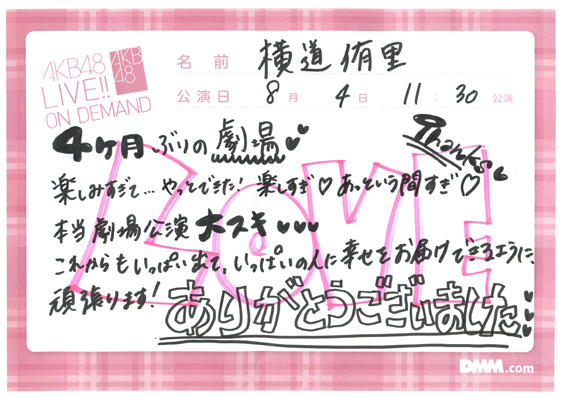 AKB48
LIVE!!
ON DEMAND
AKB
48
名前 横道侑里
公演日 8月 4日 11:30 公演
4ヶ月ぶりの劇場
Thanks
楽しみすぎて...やっとできた! 楽しすぎ♡あっという間すぎ♡
本当劇場公演大スキ♥♥♥
これからもいっぱい出て、いっぱいの人に幸せをお届けできるように、
頑張ります!
ありがとうございました
LOVE
DMM.com